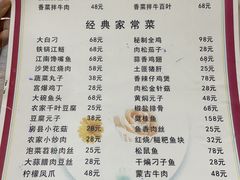 香菜拌牛肉 48元 香菜拌百叶
经典家常菜
大白刁 68元 秘制全鸡 98元
铁锅江鲢 68元 肉松茄子 28元
江南馋嘴鱼 68元 蒜香鸡翅
沙煲红烧肉 68元 土匪猪肝
蔬菜丸子 38元 香辣仔鸡煲
宫爆鸡丁 28元 肉松金针菇
大碗鱼头 68元 黄焖元子 48元
农家千叶豆腐 28元 椒盐排骨 68元
豆腐元子 38元 68元
房县小花菇 28元 鱼香肉丝 28元
农家小炒肉 28元 红烧/糍粑鱼块 32元
泡菜苕粉肉丝 28元 松鼠鱼 78元
大蒜腊肉豆丝 28元 干煸刁子鱼 28元
柠檬凤爪 48元 蒙古牛肉 48元